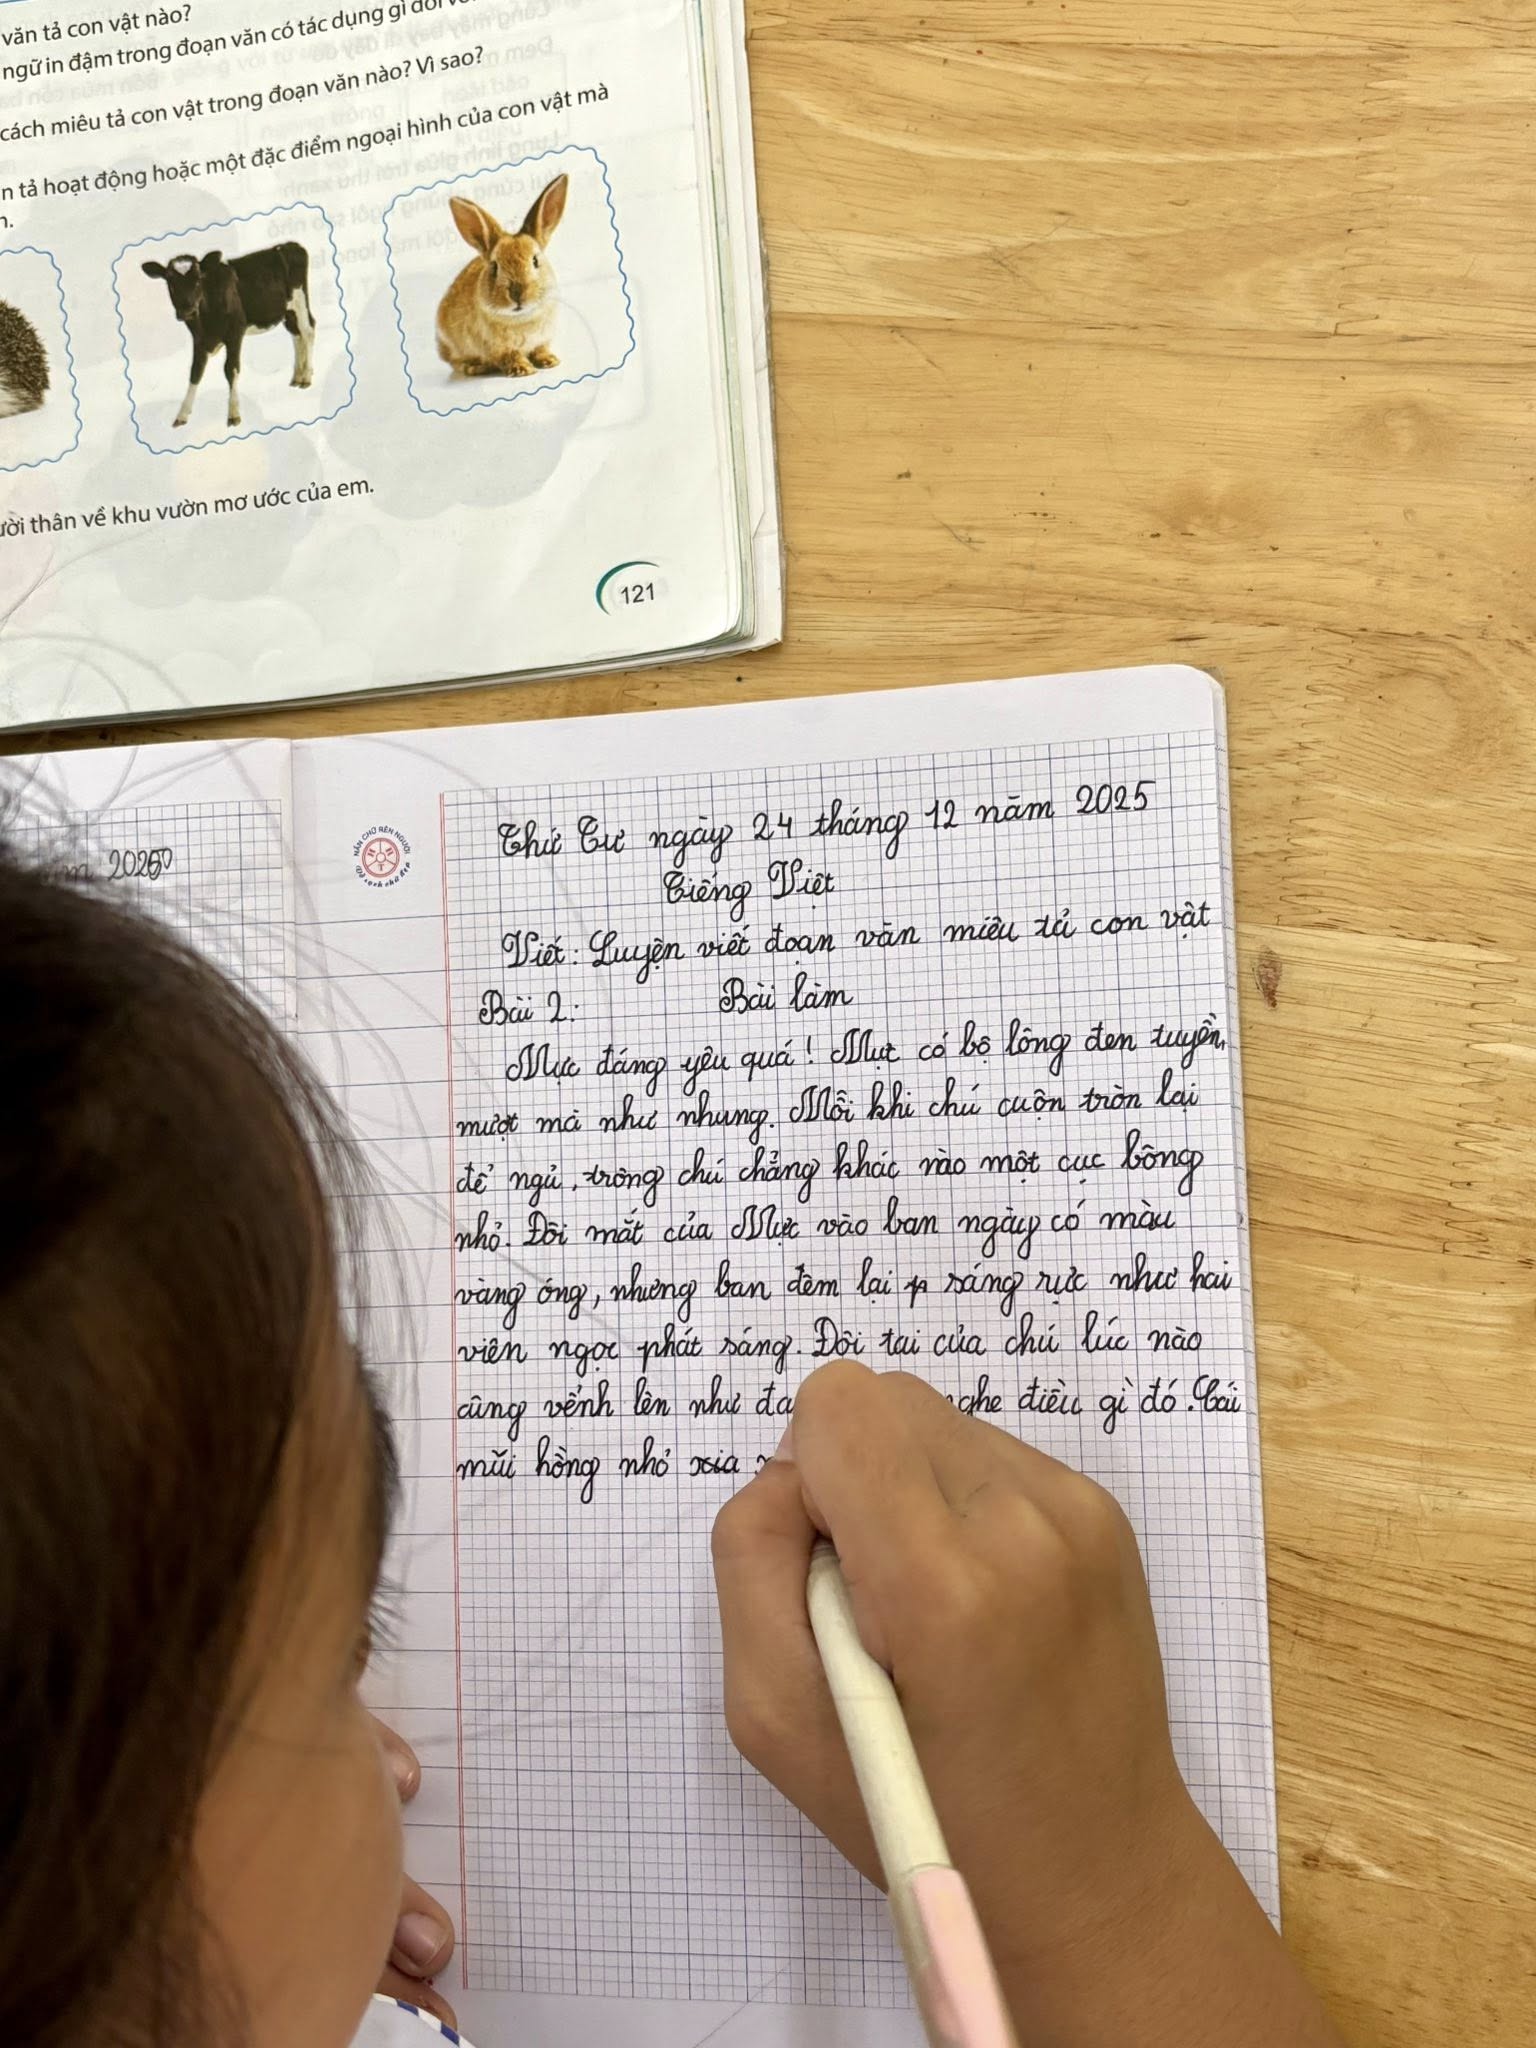 văn tả con vật nào?
ngữ in đậm trong đoạn văn có tác dụng gì đối
cách miêu tả con vật trong đoạn văn nào? Vì sao?
n tả hoạt động hoặc một đặc điểm ngoại hình của con vật mà
ười thân về khu vườn mơ ước của em.
121
NẮN CHỮ RÈN NGƯỜI
Vở sạch chữ đẹp
Thứ Tư ngày 24 tháng 12 năm 2025
Tiếng Việt
Viết: Luyện viết đoạn văn miêu tả con vật
Bài 2: Bài làm
Mực đáng yêu quá! Mực có bộ lông đen tuyền,
mượt mà như nhung. Mỗi khi chú cuộn tròn lại
để ngủ, trông chú chẳng khác nào một cục bông
nhỏ. Đôi mắt của Mực vào ban ngày có màu
vàng óng, nhưng ban đêm lại sáng rực như hai
viên ngọc phát sáng. Đôi tai của chú lúc nào
cũng vểnh lên như đa nghe điều gì đó. Cái
mũi hồng nhỏ xia